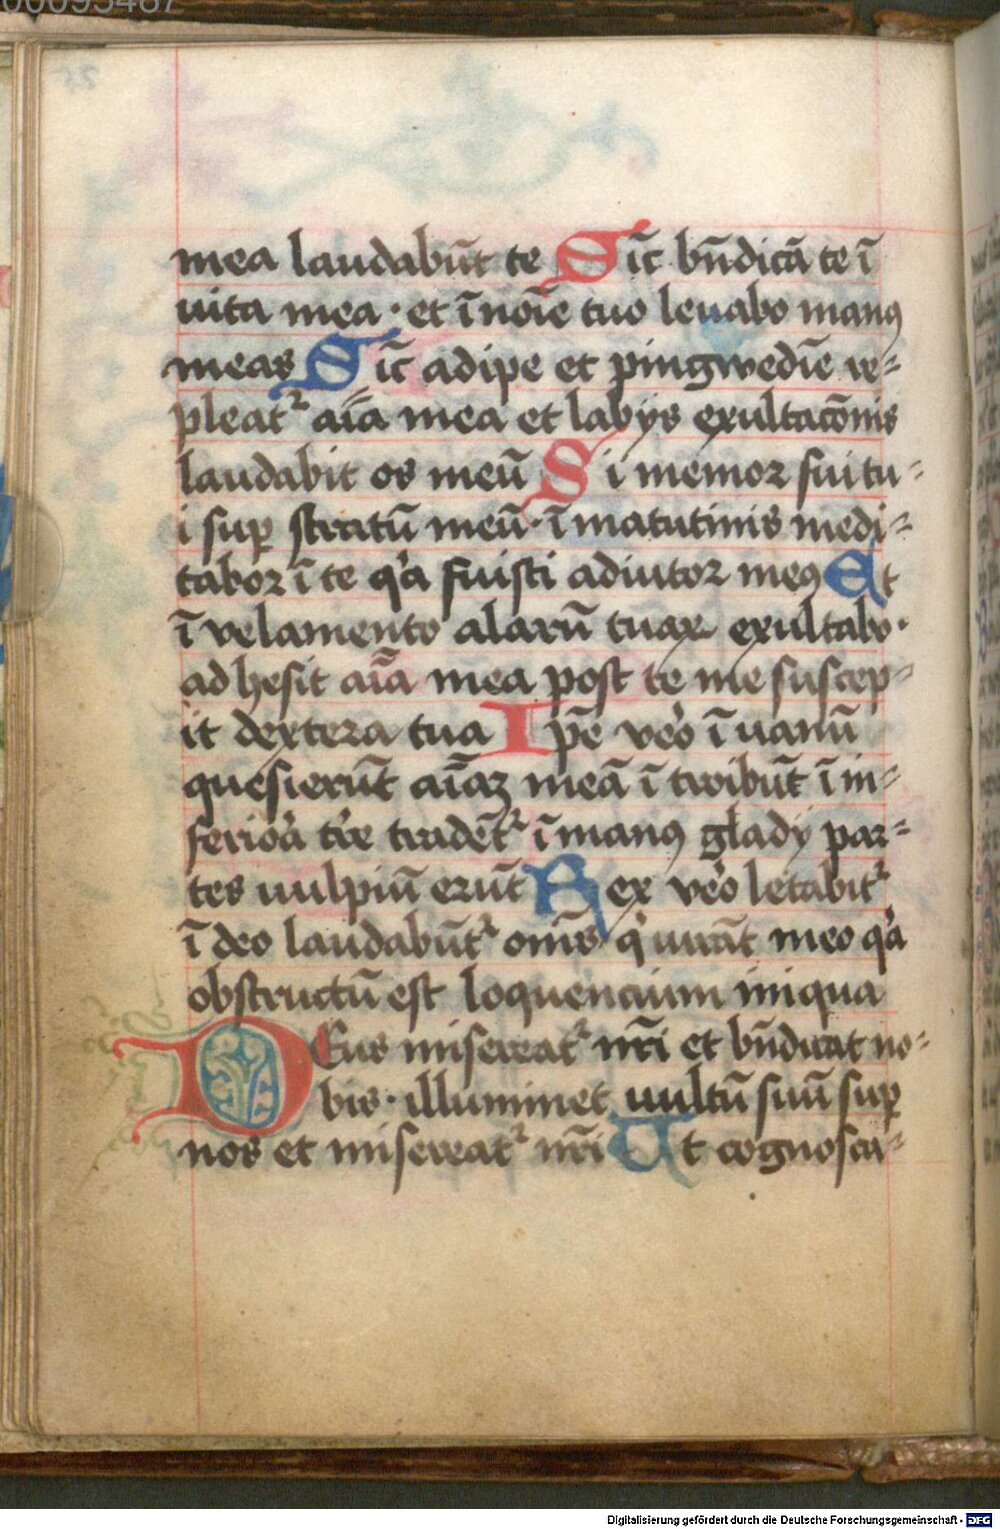 00095487
mea laudabūt te Sic̄ bn̄dicā te ī
uita mea · et ī noīe tuo leuabo manꝯ
meas Sic̄ adipe et pingwedīe re-
pleatᷣ aīa mea et labijs exultacōnis
laudabit os meū Si memor fui tu-
i suꝑ stratū meū · ī matutinis medi-
tabor ī te qͥa fuisti adiutor meꝯ Et
ī velamento alarū tuaꝝ exultabo ·
ad hesit aīa mea post te me suscep-
it dextera tua Ip̄e vero ī uanū
quesierūt aīaꝫ meā ītroibūt ī in-
feriora tre tradētᷣ ī manꝯ gladij par-
tes uulpiū erūt Rex vero letabitᷣ
ī deo laudabūtᷣ om̄s qͥ iurāt meo qͥa
obstructū est loquencium iniqua
DEus misereatᷣ nr̄i et bn̄dicat no-
bis · illuminet uultū suū suꝑ
nos et misereatᷣ nr̄i Ut cognosca-
Digitalisierung gefördert durch die Deutsche Forschungsgemeinschaft - DFG